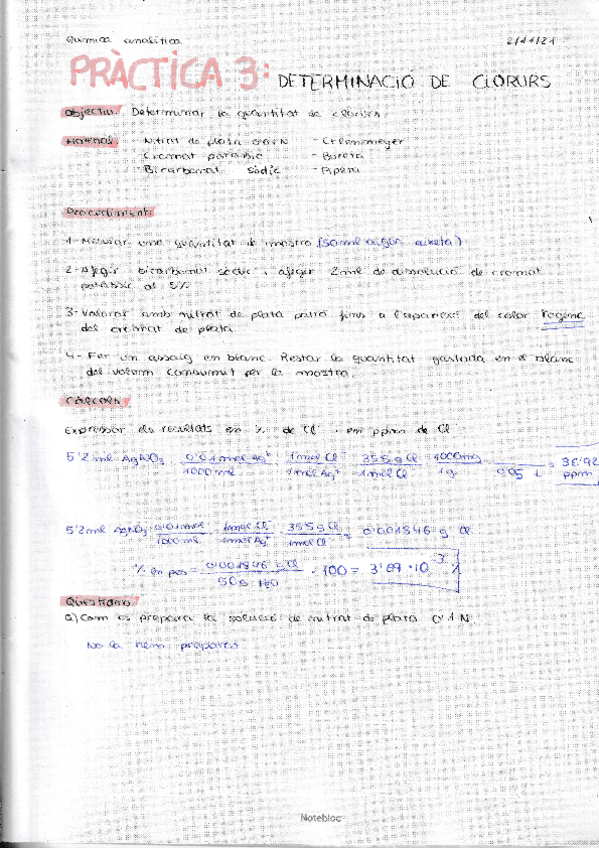 Química analítica 2/11/21
PRÀCTICA 3: DETERMINACIÓ DE CLORURS
Objectiu: Determinar la quantitat de clorurs
Material: - Nitrat de plata - Erlenmeyer
Cromat potàssic - Bureta
- Bicarbonat sòdic - Pipeta
Procediment:
1- Mesurar una quantitat de mostra (50ml aigua aixeta)
2- Afegir bicarbonat sòdic i afegir 2ml de dissolució de cromat
potàssic al 5%
3- Valorar amb nitrat de plata patró fins a l'aparició del color
del cromat de plata.
4- Fer un assaig en blanc. Restar la quantitat gastada en el blanc
del volum consumit per la mostra.
Càlculs
Expressar els resultats en % de Cl⁻ i en ppm de Cl⁻
5'2 ml AgNO₃ · 0'01 mol Ag⁺/1000 ml · 1 mol Cl⁻/1 mol Ag⁺ · 35'5 g Cl/1 mol Cl · 1000mg/1g · /0'05 L = 36'92 ppm
5'2 ml AgNO₃ · 0'01 mol/1000 ml · 1 mol Cl⁻/1 mol Ag⁺ · 35'5 g Cl/1 mol Cl = 0'001846 g Cl
% en pes = 0'001846 g Cl/50 · 100 = 3'69 · 10⁻³ %
Qüestions
a) Com es prepara la solució de nitrat de plata 0'1 N
No la hem preparat
Notebloc